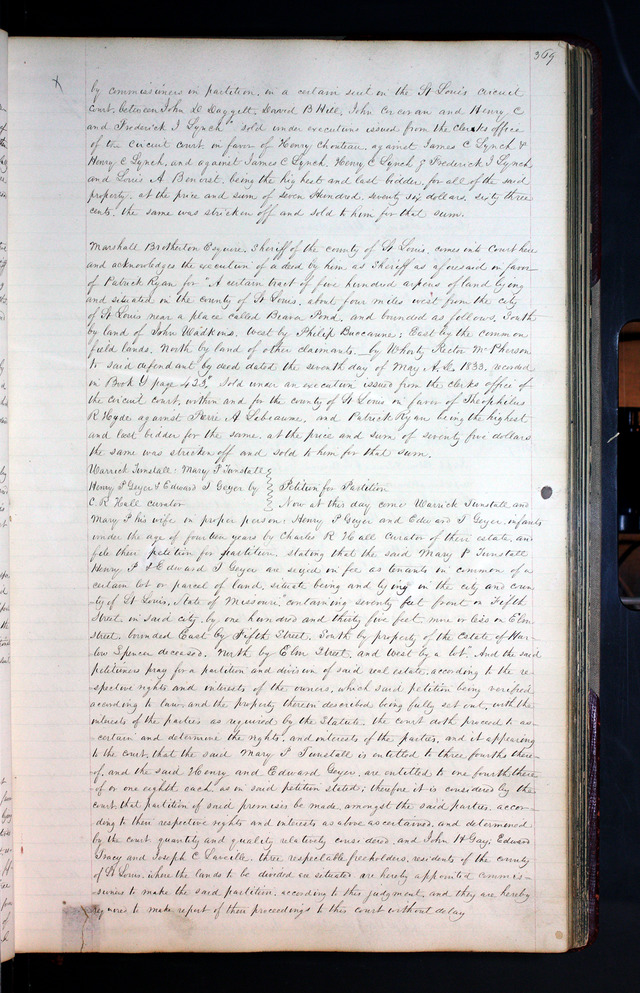 369
by commissioners in partition, in a certain suit in the St Louis circuit
court, between John D Daggett, David B Hill, John Corcoran and Henry C
and Frederick I Lynch" sold under executions issued from the clerks office
of the circuit court in favor of Henry Chouteau, against James C Lynch &
Henry C Lynch, and against James C Lynch, Henry C Lynch & Frederick I Lynch
and Louis A Benoist, being the highest and last bidder, for all of the said
property, at the price and sum of seven Hundred, seventy six dollars, sixty three
cents, the same was stricken off and sold to him for that sum.
Marshall Brotherton Esquire, Sheriff of the county of St Louis, comes into Court here
and acknowledges the execution of a deed by him as Sheriff as aforesaid in favor
of Patrick Ryan for "A certain tract of five hundred arpens of land lying
and situated in the county of St Louis, about four miles west from the city
of St Louis near a place called Beava Pond, and bounded as follows, South
by land of John Wadkins, West by Philip Buccanne; East by the common
field lands, North by land of other claimants, by Whorty Rector McPherson
to said defendant by deed dated the seventh day of May A.D. 1833, recorded
in Book page 423" Sold under an execution issued from the clerks office of
the circuit court, within and for the county of St Louis in favor of Theophilus
R Hyde against Pierre A Lebeaume, and Patrick Ryan being the highest
and last bidder for the same, at the price and sum of seventy five dollars
the same was stricken off and sold to him for that sum.
Warrick Tunstall, Mary P Tunstall
Henry P Geyer & Edward I Geyer by Petition for Partition
C. R Hall curator Now at this day come Warrick Tunstall and
Mary P his wife in proper person, Henry P Geyer and Edward I Geyer, infants
under the age of fourteen years by Charles R Hall curator of their estate, and
file their petition for partition, stating that the said Mary P Tunstall
Henry P & Edward I Geyer are seized in fee as tenants in common of a
certain lot or parcel of land, situate being and lying in the city and coun-
ty of St Louis, State of Missouri, "containing seventy feet front on Fifth
Street, in said city, by one hundred and thirty five feet, more or less on Elm
street, bounded East by Fifth Street, South by property of the Estate of Har-
low Spencer deceased, North by Elm Street, and West by a lot". And the said
petitioners pray for a partition and division of said real estate, according to the re-
spective rights and interests of the owners, which said petition being verified
according to law, and the property therein described being fully set out, with the
interests of the parties as required by the Statute, the court doth proceed to as-
certain and determine the rights, and interests of the parties, and it appearing
to the court, that the said Mary P Tunstall is entitled to three fourths there-
of, and the said Henry and Edward Geyer, are entitled to one fourth there
of or one eighth each, as in said petition stated; therefore it is considered by the
court, that partition of said premises be made, amongst the said parties, accor-
ding to their respective rights and interests as above ascertained, and determined
by the court quantity and quality relatively considered, and John H Gay, Edward
Tracy and Joseph C Laveille, three respectable freeholders, residents of the county
of St Louis, where the lands to be divided are situated are hereby appointed commis-
sioners to make the said partition, according to this judgment, and they are hereby
required to make report of their proceedings to this court without delay